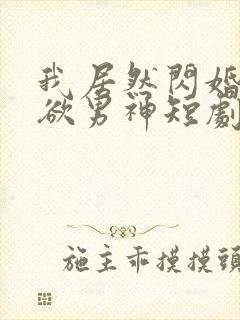 我居然閃婚
欲男神短劇
施主乖摸摸頭